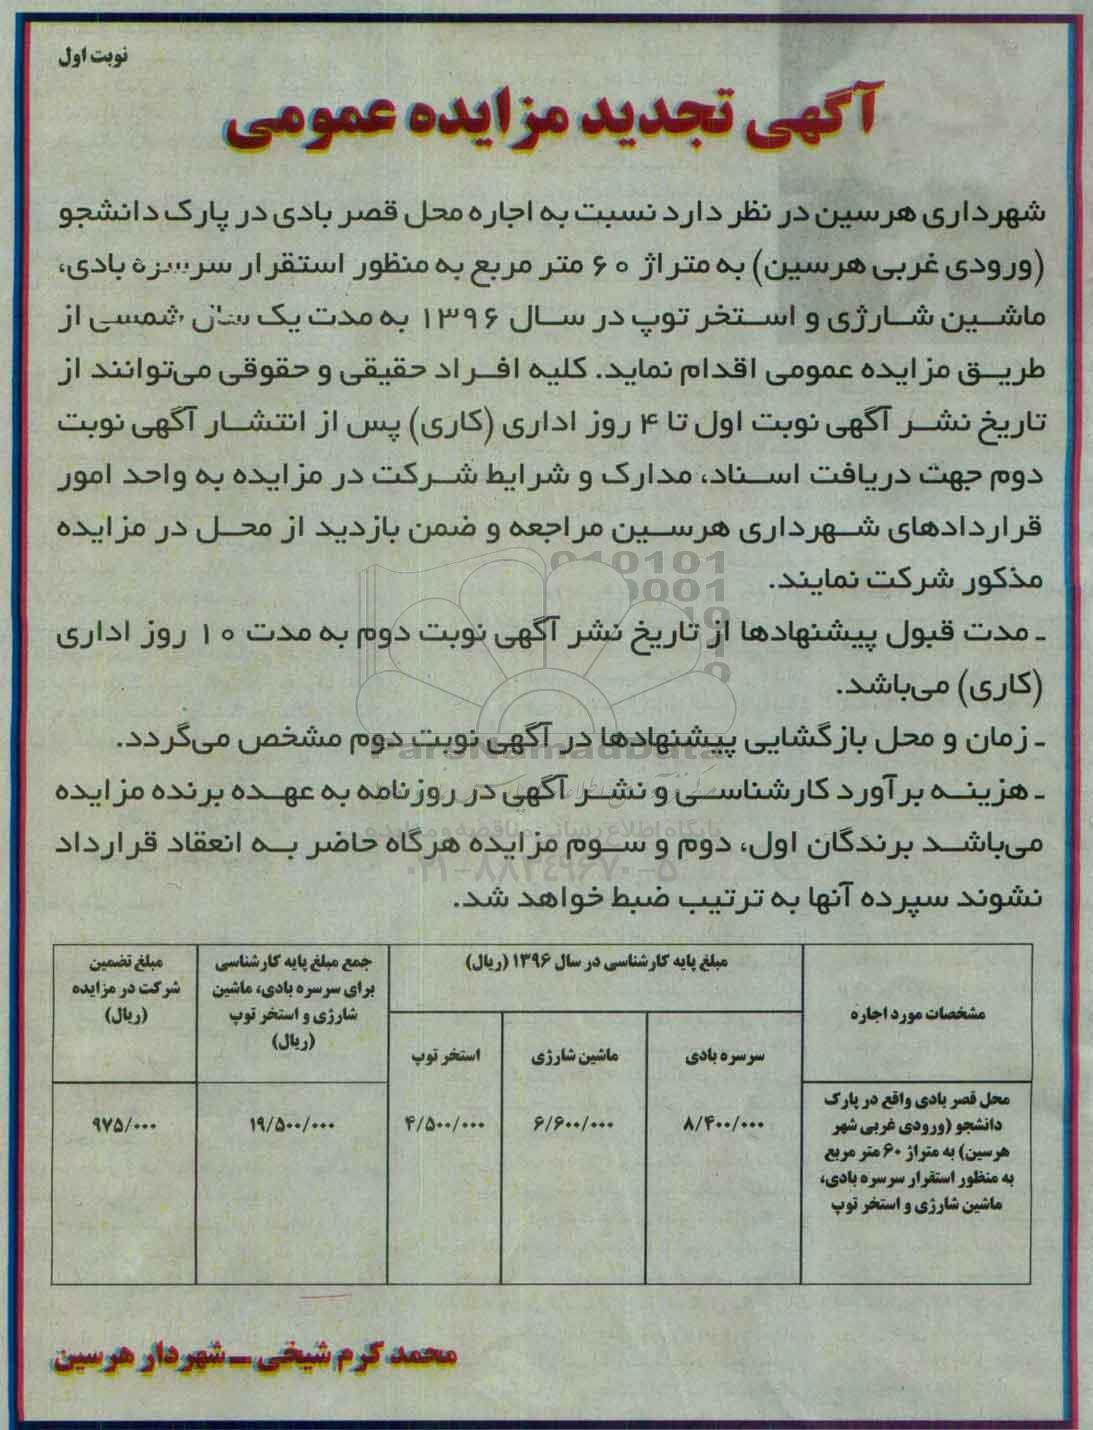 نوبت اول
آگهی تجدید مزایده عمومی
شهرداری هرسین در نظر دارد نسبت به اجاره محل قصر بادی در پارک دانشجو
(ورودی غربی هرسین) به متراژ ۶۰ متر مربع به منظور استقرار سرسره بادی،
ماشین شارژی و استخر توپ در سال ۱۳۹۶ به مدت یک سال شمسی از
طریق مزایده عمومی اقدام نماید. کلیه افراد حقیقی و حقوقی می‌توانند از
تاریخ نشر آگهی نوبت اول تا ۴ روز اداری (کاری) پس از انتشار آگهی نوبت
دوم جهت دریافت اسناد، مدارک و شرایط شرکت در مزایده به واحد امور
قراردادهای شهرداری هرسین مراجعه و ضمن بازدید از محل در مزایده
مذکور شرکت نمایند.
ـ مدت قبول پیشنهادها از تاریخ نشر آگهی نوبت دوم به مدت ۱۰ روز اداری
(کاری) می‌باشد.
ـ زمان و محل بازگشایی پیشنهادها در آگهی نوبت دوم مشخص می‌گردد.
ـ هزینه برآورد کارشناسی و نشر آگهی در روزنامه به عهده برنده مزایده
می‌باشد برندگان اول، دوم و سوم مزایده هرگاه حاضر به انعقاد قرارداد
نشوند سپرده آنها به ترتیب ضبط خواهد شد.
ParsNamadData
پایگاه اطلاع رسانی مناقصه و مزایده
۰۲۱-۸۸۳۴۹۶۷۰-۵
مشخصات مورد اجاره
مبلغ پایه کارشناسی در سال ۱۳۹۶ (ریال)
سرسره بادی
ماشین شارژی
استخر توپ
جمع مبلغ پایه کارشناسی
برای سرسره بادی، ماشین
شارژی و استخر توپ
(ریال)
مبلغ تضمین
شرکت در مزایده
(ریال)
محل قصر بادی واقع در پارک
دانشجو (ورودی غربی شهر
هرسین) به متراژ ۶۰ متر مربع
به منظور استقرار سرسره بادی،
ماشین شارژی و استخر توپ
۸/۴۰۰/۰۰۰
۶/۶۰۰/۰۰۰
۴/۵۰۰/۰۰۰
۱۹/۵۰۰/۰۰۰
۹۷۵/۰۰۰
محمد کرم شیخی ـ شهردار هرسین